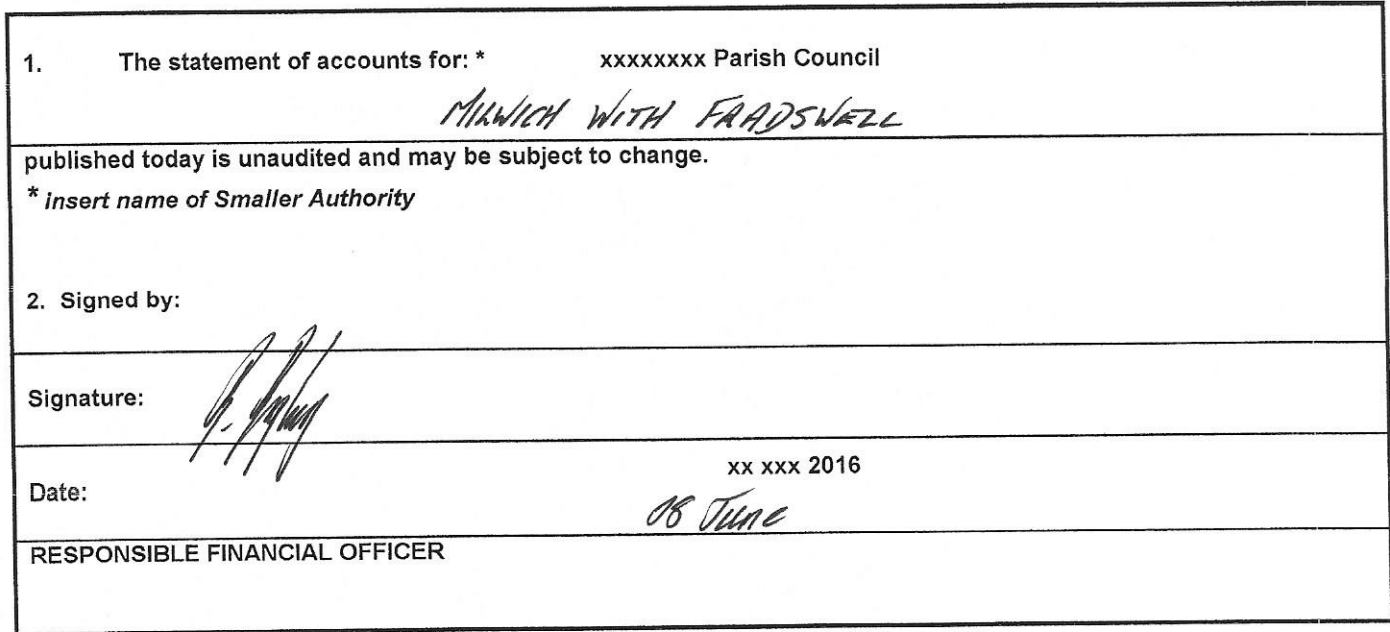 1. The statement of accounts for: * xxxxxxxx Parish Council
MILWICH WITH FRADSWELL
published today is unaudited and may be subject to change.
* insert name of Smaller Authority
2. Signed by:
Signature:
xx xxx 2016
Date:
08 June
RESPONSIBLE FINANCIAL OFFICER